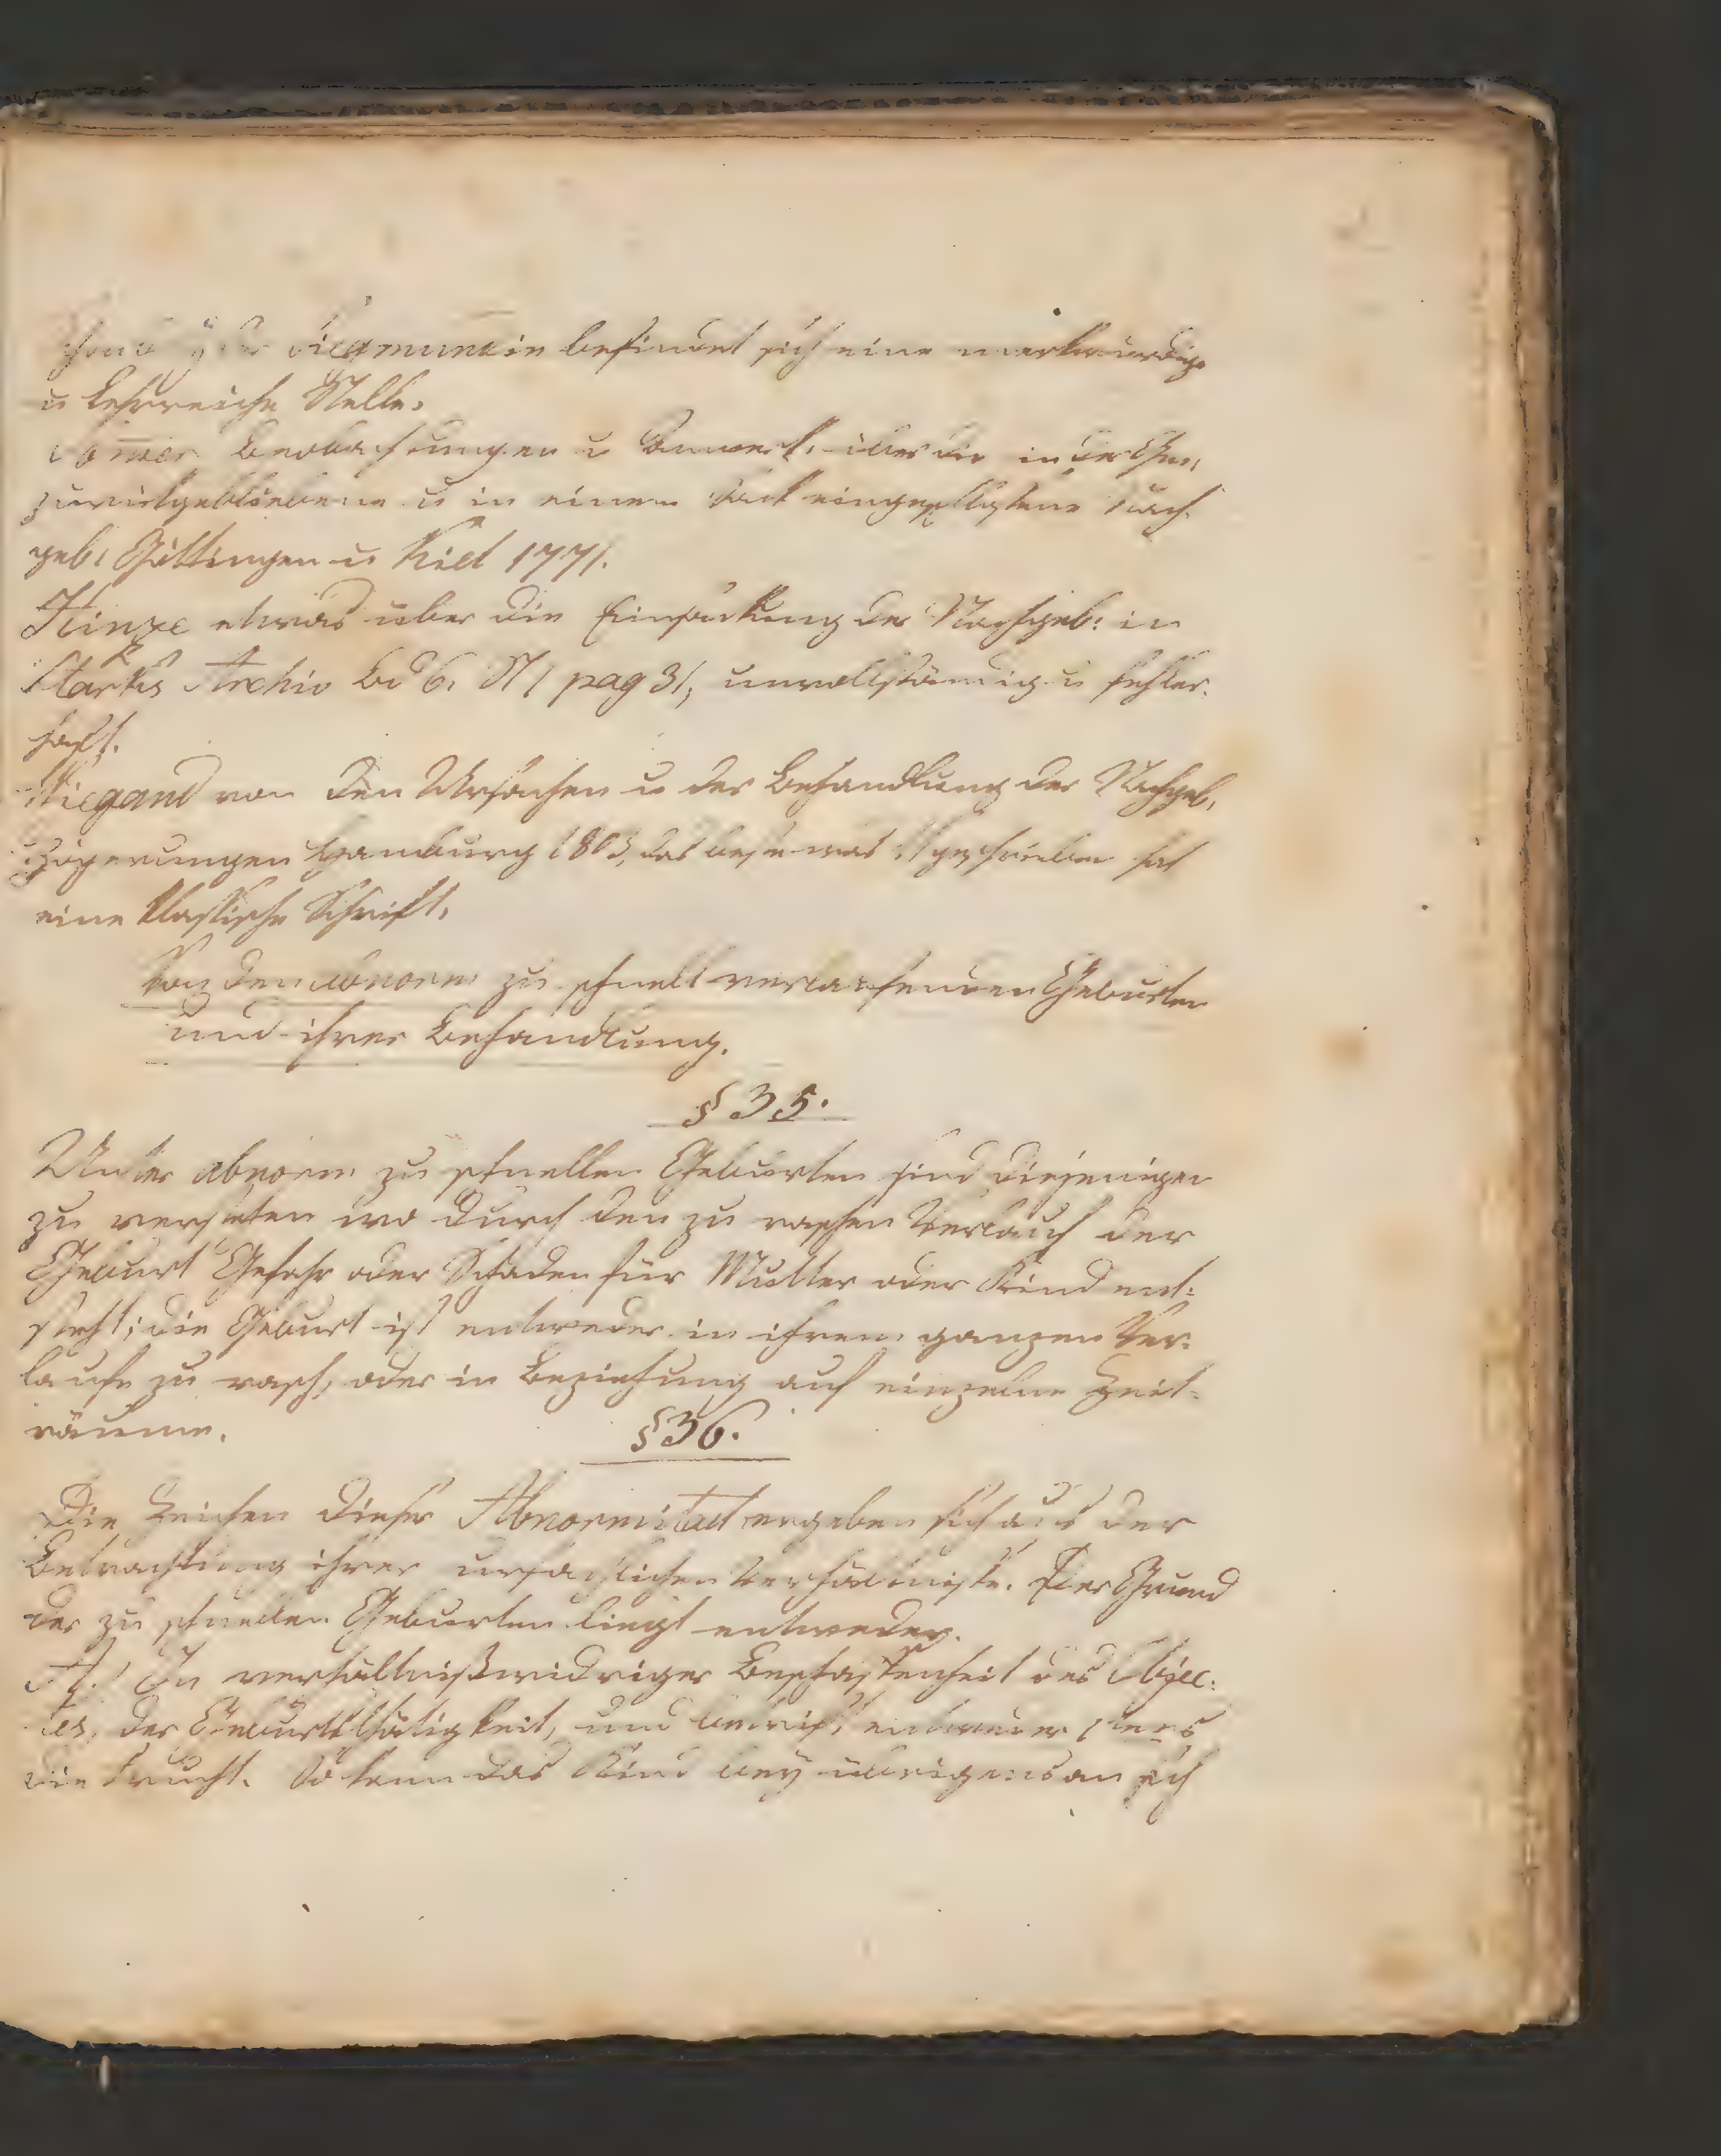 Siegmundin befindet sich eine merkwürdige
u lehrreiche Stelle.
Beobachtungen u Anmerk. über die in der Geb.
zurückgebliebene u in einem Sack eingeschlossene Nach-
geb. Göttingen u Kiel 1771.
Hinze etwas über die Einsackung der Nachgeb: in
Starks Archiv Bd 6. St 1 pag 31, unvollständig u fehler-
haft.
Wiegand von den Ursachen u der Behandlung der Nachgeb.
zögerungen Hamburg 1803, das beste was geschrieben hat
eine klassische Schrift.
Von den abnorm zu schnell verlaufenden Geburten
und ihrer Behandlung.
§ 35.
Unter abnorm zu schnellen Geburten sind diejenigen
zu verstehen wo durch den zu raschen Verlauf der
Geburt Gefahr oder Schaden für Mutter oder Kind ent-
steht; die Geburt ist entweder in ihrem ganzen Ver-
laufe zu rasch, oder in Beziehung auf einzelne Zeit-
räume.
§ 36.
Die Zeichen dieser Abnormitaet ergeben sich aus der
Betrachtung ihrer ursächlichen Verhältnisse. Der Grund
der zu schnellen Geburten liegt entweder.
A.) In verhältnißwidriger Beschaffenheit des Objec-
tes, der Geburtsthätigkeit, und betrift entweder 1tens
die Frucht. So kann das Kind bey übrigens an sich